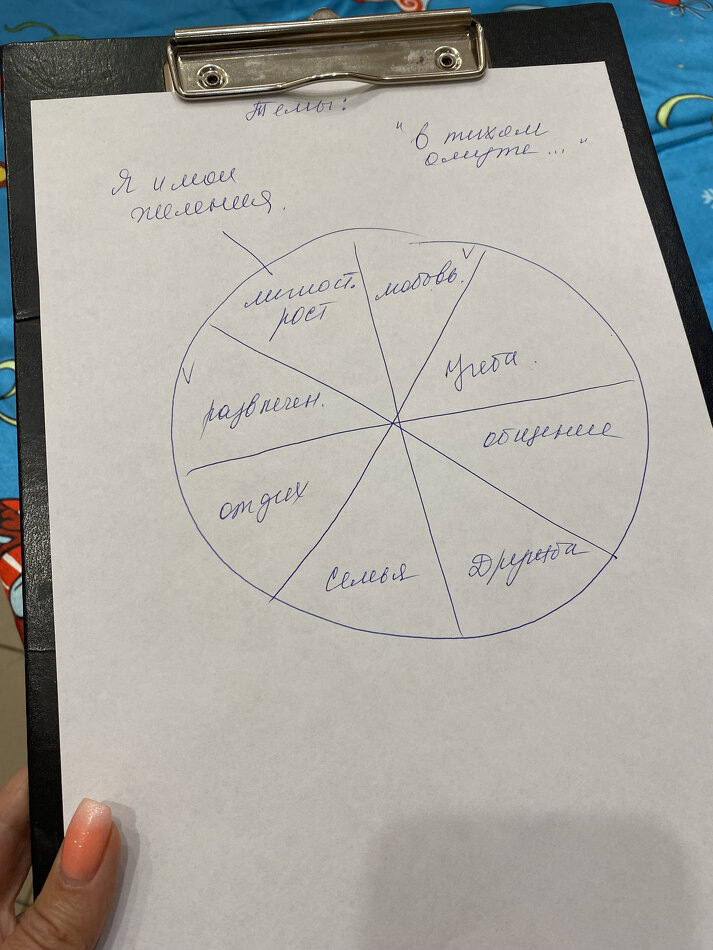 Темы:
"в тихом
омуте..."
Я и мои
желения.
личност.
рост
любовь.
учеба.
общение
Дружба
Семья
отдих
развлечен.